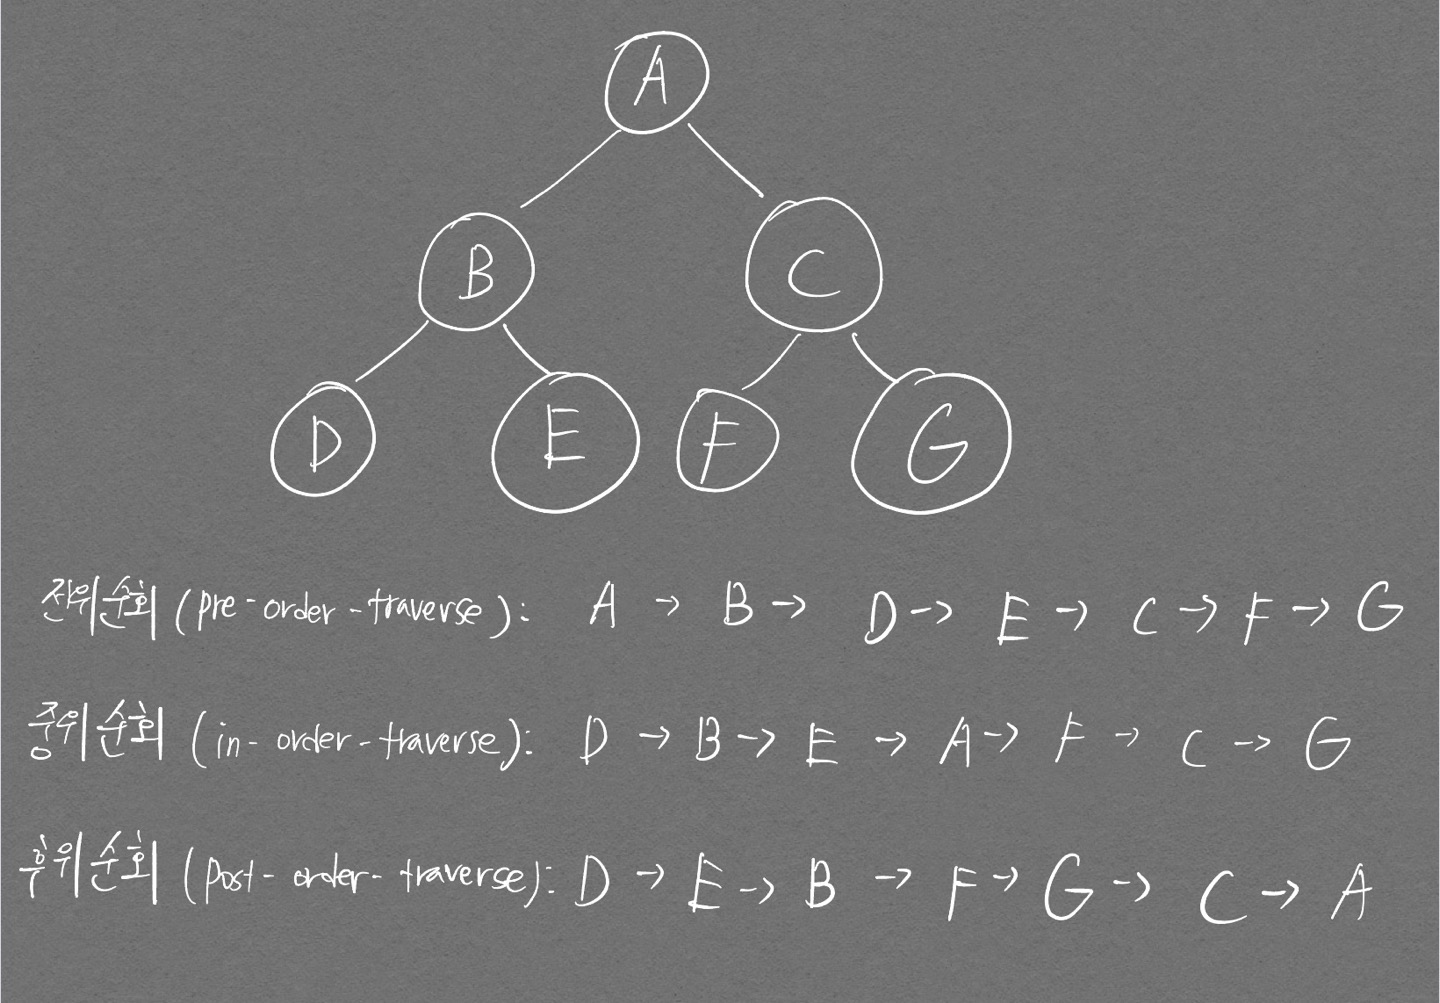 A
B C
D E F G
전위순회 (pre-order-traverse): A → B → D → E → C → F → G
중위순회 (in-order-traverse): D → B → E → A → F → C → G
후위순회 (post-order-traverse): D → E → B → F → G → C → A